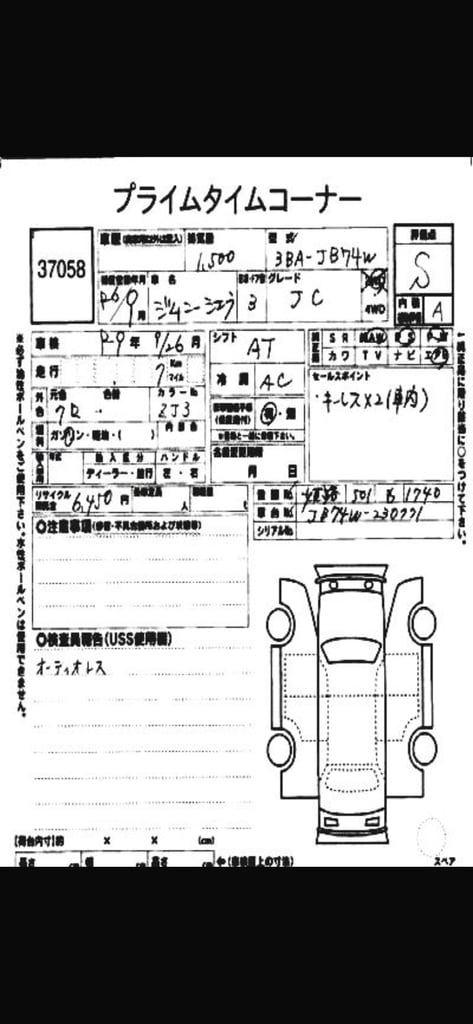 プライムタイムコーナー
37058
排気量
1,500
型式
3BA-JB74W
評価点
S
車名
ジムニーシエラ
ドア
3
グレード
JC
4WD
内装
A
車検
R9年 9/26月
シフト
AT
SR
AW
PS
PW
カワ
TV
ナビ
エアB
走行
7
Km
マイル
冷房
AC
セールスポイント
・キーレスX2(車内)
外色
元色
色替
カラーNo
ZJ3
内装色
燃料
ガソリン・軽油・( )
有・無
名義変更期限
月 日
輸入車
年式
輸入区分
ハンドル
ディーラー・並行
左・右
リサイクル
預託金
6,450円
人
t
登録No.
姫路 501 1740
車台No.
JB74W-230771
シリアルNo.
◎注意事項
◎検査員報告(USS使用欄)
オーディオレス
【荷台内寸】約 × × (cm)
長さ cm 幅 cm 高さ cm
(車検証上の寸法)
スペア
※必ず油性ボールペンをご使用下さい。水性ボールペンは使用できません。